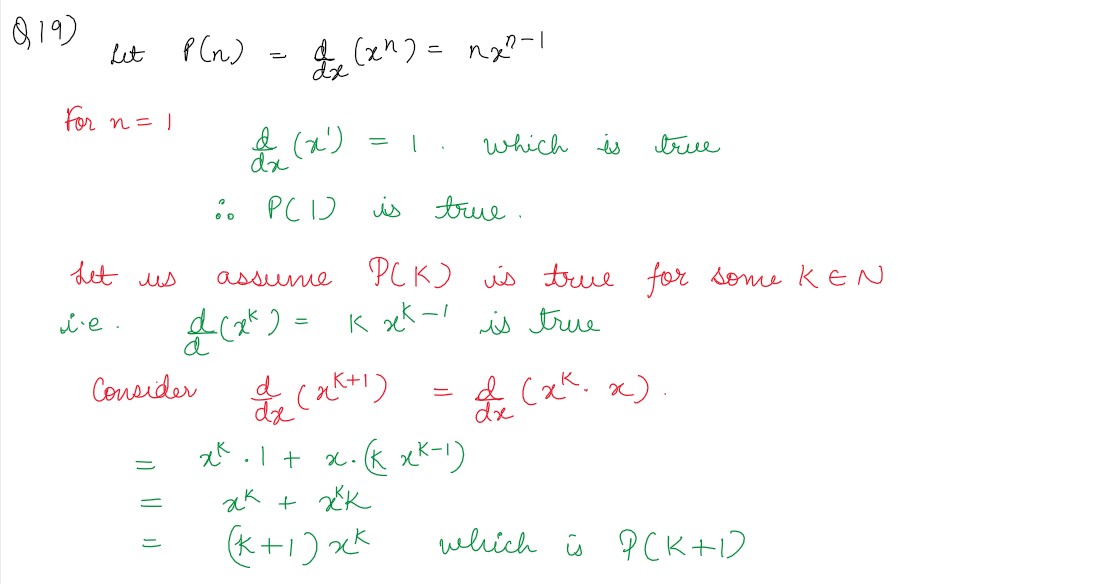 Q19)
Let P(n) = d/dx (xⁿ) = nxⁿ⁻¹
For n = 1
d/dx (x¹) = 1 . which is true
∴ P(1) is true.
Let us assume P(K) is true for some K ∈ N
i.e. d/d (xᴷ) = K xᴷ⁻¹ is true
Consider d/dx (xᴷ⁺¹) = d/dx (xᴷ. x) .
= xᴷ . 1 + x.(K xᴷ⁻¹)
= xᴷ + xᴷK
= (K+1) xᴷ which is P(K+1)